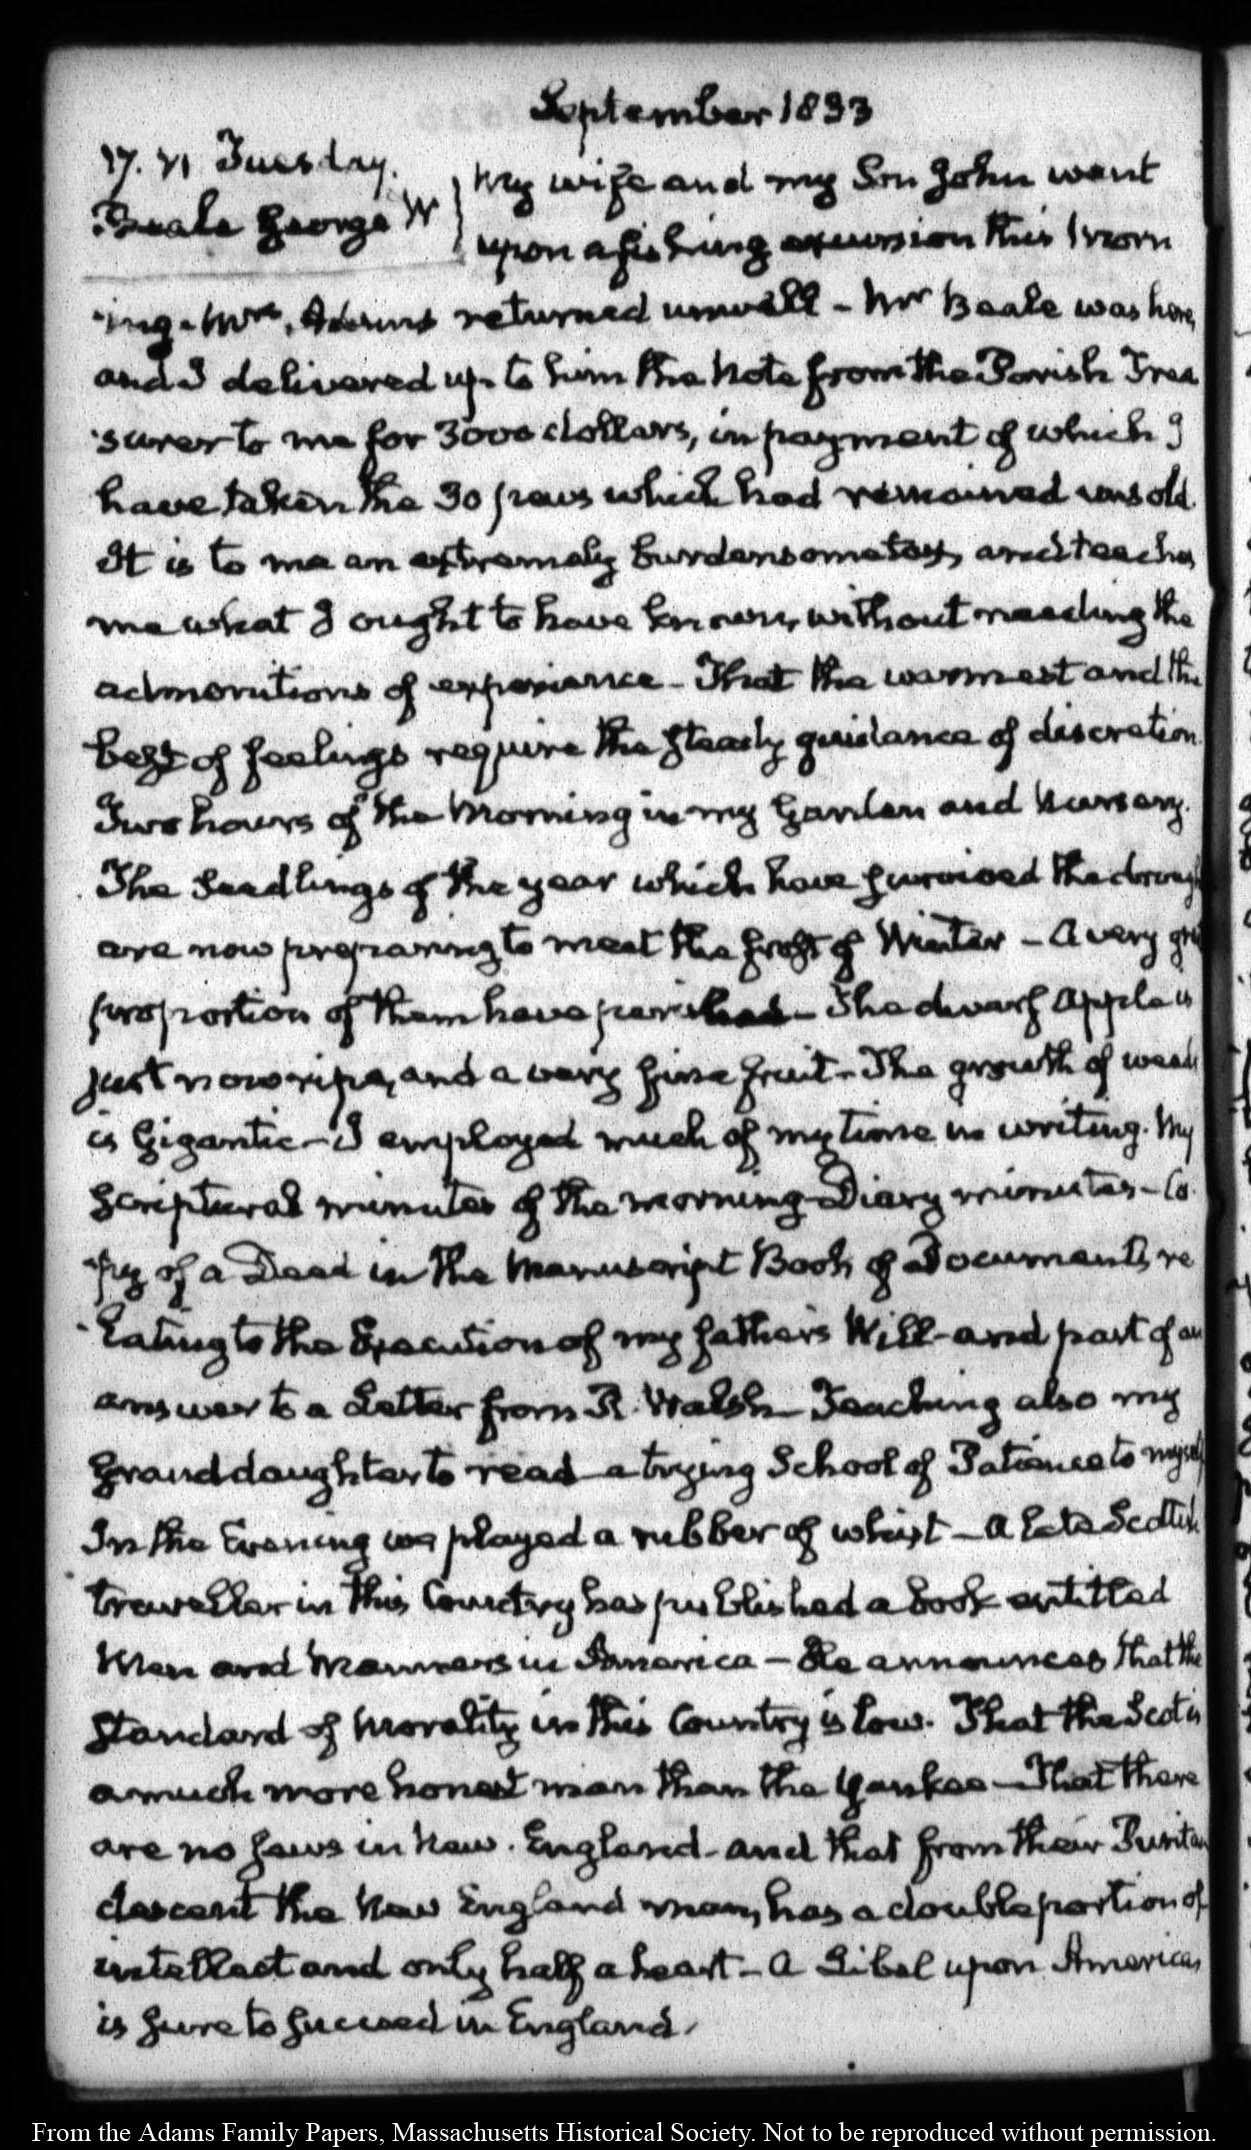 September 1833
17. VI Tuesday.
Beale George W
My wife and my Son John went
upon a fishing excursion this morn
-ing. Mrs. Adams returned unwell - Mr Beale was here,
and I delivered up to him the Note from the Parish Trea
-surer to me for 3000 dollars, in payment of which I
have taken the 30 pews which had remained unsold.
It is to me an extremely burdensome tax, and teaches
me what I ought to have known, without needing the
admonitions of experience - That the warmest and the
best of feelings require the steady guidance of discretion.
Two hours of the Morning in my Garden and Nursery.
The Seedlings of the year which have survived the drough
are now preparing to meet the frost of Winter - A very gre
proportion of them have perished - The dwarf Apple is
just now ripe, and a very fine fruit - The growth of weeds
is Gigantic - I employed much of my time in writing. My
Scriptural minutes of the morning Diary minutes - Co
-py of a Deed in the Manuscript Book of Documents re
-lating to the Execution of my father's Will - and part of an
answer to a Letter from R. Walsh - Teaching also my
Granddaughter to read - a trying School of Patience to myself
In the Evening we played a rubber of whist - A late Scottish
traveller in this Country has published a book entitled
Men and Manners in America - He announces that the
standard of Morality in this Country is low. That the Scot is
a much more honest man than the Yankee - That there
are no Jews in New. England - and that from their Puritan
descent the New England man, has a double portion of
intellect and only half a heart - A Libel upon Americas
is sure to succeed in England.
From the Adams Family Papers, Massachusetts Historical Society. Not to be reproduced without permission.